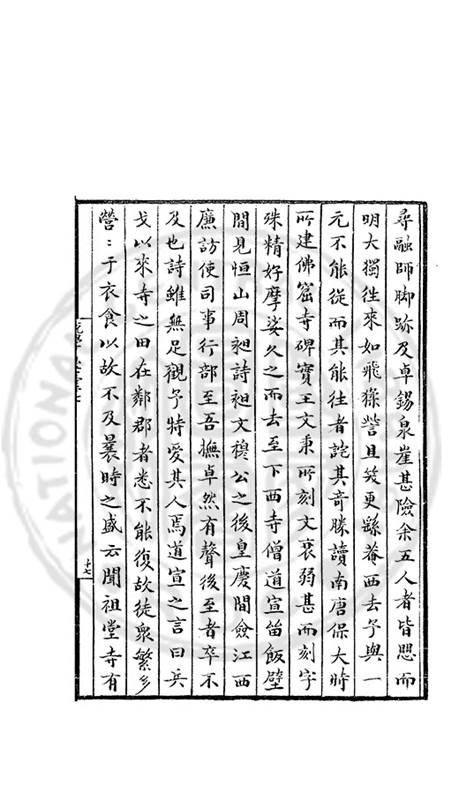 尋融師脚跡及卓錫泉崖甚險余五人者皆思而
明大獨徃來如飛猱訾且笑更繇菴西去予與一
元不能從而其能徃者詫其奇勝讀南唐保大時
所建佛窟寺碑寶王文秉所刻文衰弱甚而刻字
殊精好摩娑久之而去至下西寺僧道宣笛飯壁
間見恒山周昶詩昶文穆公之後皇慶間僉江西
廉訪使司事行部至吾撫卓然有聲後至者卒不
及也詩雖無足觀予特愛其人焉道宣之言曰兵
戈以來寺之田在鄰郡者悉不能復故徒衆繁多
營〻于衣食以故不及曩時之盛云聞祖堂寺有
十七
NATIONAL